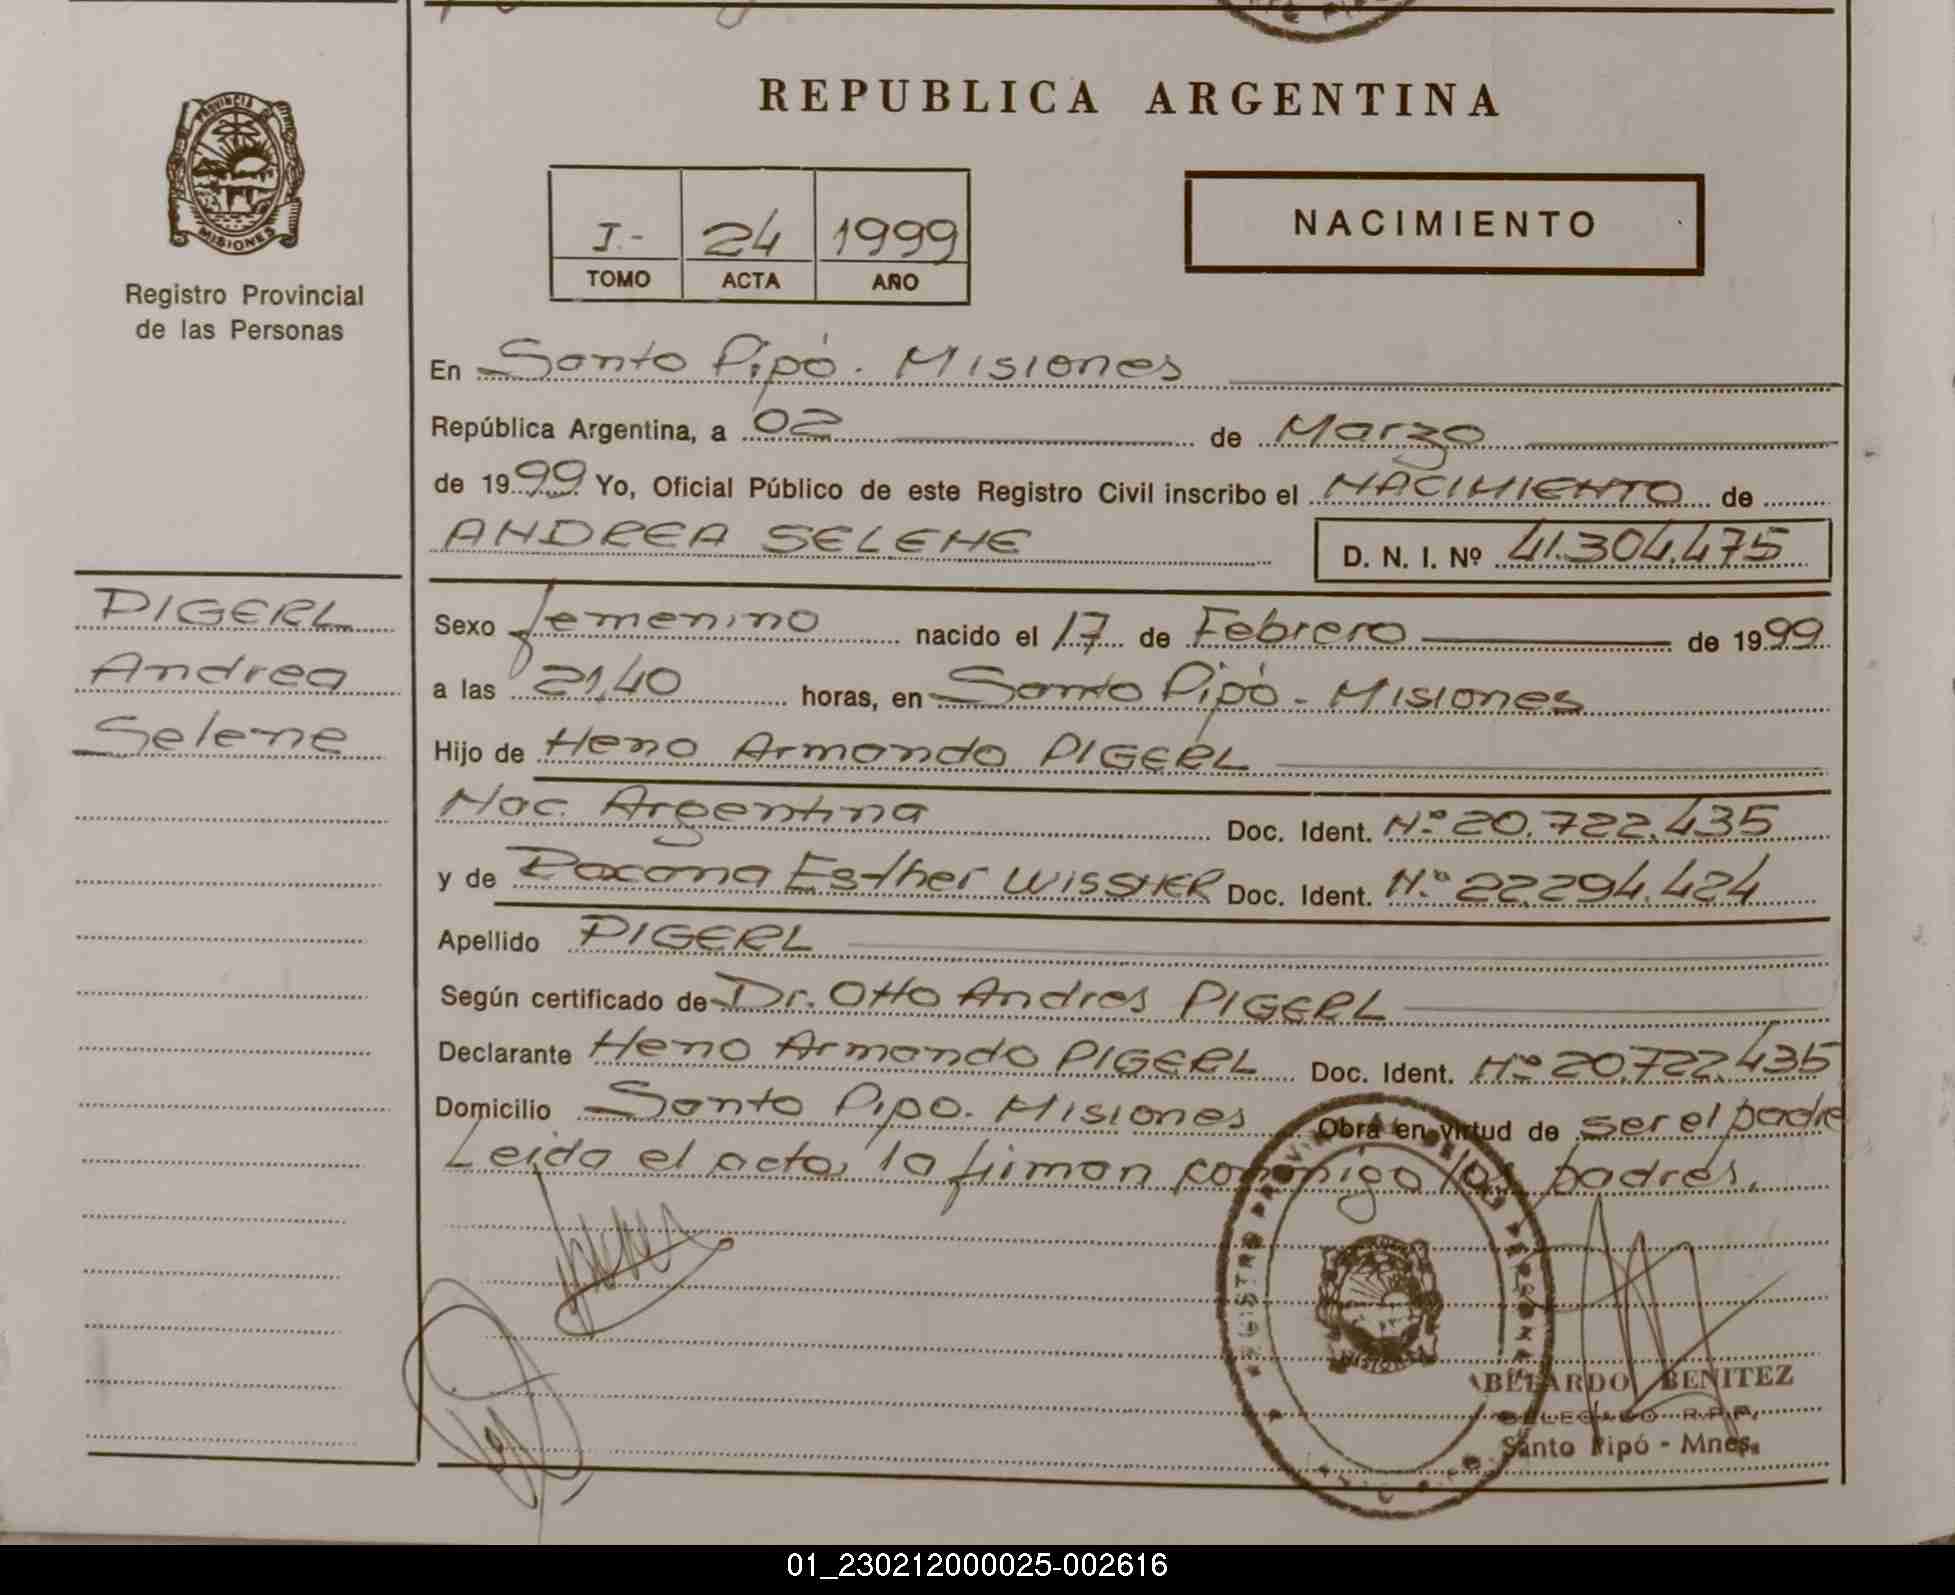 REPUBLICA ARGENTINA
PROVINCIA DE
MISIONES
Registro Provincial
de las Personas
I.- 24 1999
TOMO ACTA AÑO
NACIMIENTO
En Santo Pipó. Misiones
República Argentina, a 02 de Marzo
de 1999 Yo, Oficial Público de este Registro Civil inscribo el NACIMIENTO de
ANDREA SELENE D. N. I. Nº 41.304.475
PIGERL
Andrea
Selene
Sexo femenino nacido el 17 de Febrero de 1999
a las 21,40 horas, en Santo Pipó - Misiones
Hijo de Heno Armando PIGERL
Nac. Argentina Doc. Ident. Nº 20.722.435
y de Esther Doc. Ident. Nº 22.294.424
Apellido PIGERL
Según certificado de Dr. Otto Andres PIGERL
Declarante Heno Armando PIGERL Doc. Ident. Nº 20.722.435
Domicilio Santo Pipo. Misiones Obra en virtud de ser el padre
Leida el acta, la firman conmigo los padres.
REGISTRO PROVINCIAL DE LAS PERSONAS
MISIONES
ABELARDO BENITEZ
DELEGADO R.P.P.
Santo Pipó - Mnes.
01_230212000025-002616